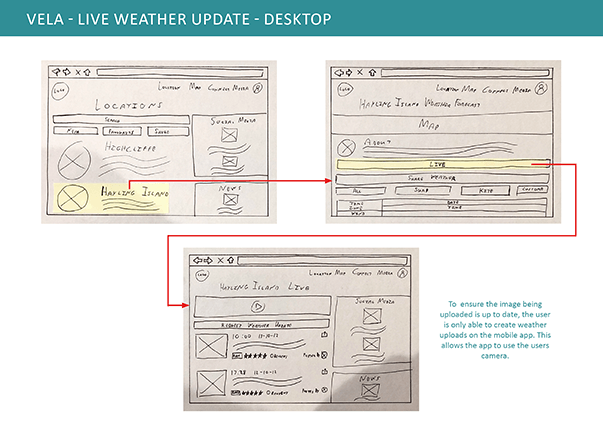 VELA - LIVE WEATHER UPDATE - DESKTOP
LOCATION MAP CONNECT MEDIA
LOGO
LOCATIONS
SEARCH
NEAR FAVOURITES
HIGHCLIFFE
HAYLING ISLAND
SOCIAL MEDIA
NEWS
LOCATION MAP CONNECT MEDIA
LOGO
HAYLING ISLAND WEATHER FORECAST
MAP
ABOUT
LIVE
WEATHER
ALL SURF KITE CUSTOM
DATE
TIME
LOCATION MAP CONNECT MEDIA
LOGO
HAYLING ISLAND LIVE
REQUEST WEATHER UPDATE
10:00
SOCIAL MEDIA
NEWS
To ensure the image being
uploaded is up to date, the user
is only able to create weather
uploads on the mobile app. This
allows the app to use the users
camera.